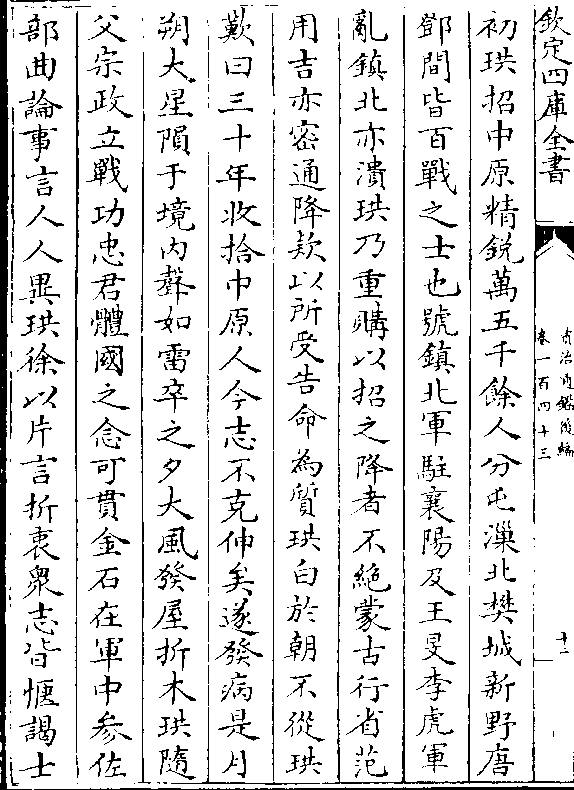 欽定四庫全書
資治通鑑後編
卷一百四十三
十二
初珙招中原精銳萬五千餘人分屯漅北樊城新野唐
鄧間皆百戰之士也號鎮北軍駐襄陽及王旻李虎軍
亂鎮北亦潰珙乃重購以招之降者不絕蒙古行省范
用吉亦密通降欵以所受告命為質珙白於朝不從珙
歎曰三十年收拾中原人今志不克伸矣遂發病是月
朔大星隕于境内聲如雷卒之夕大風發屋折木珙隨
父宗政立戰功忠君體國之念可貫金石在軍中參佐
部曲論事言人人異珙徐以片言折衷衆志皆愜謁士